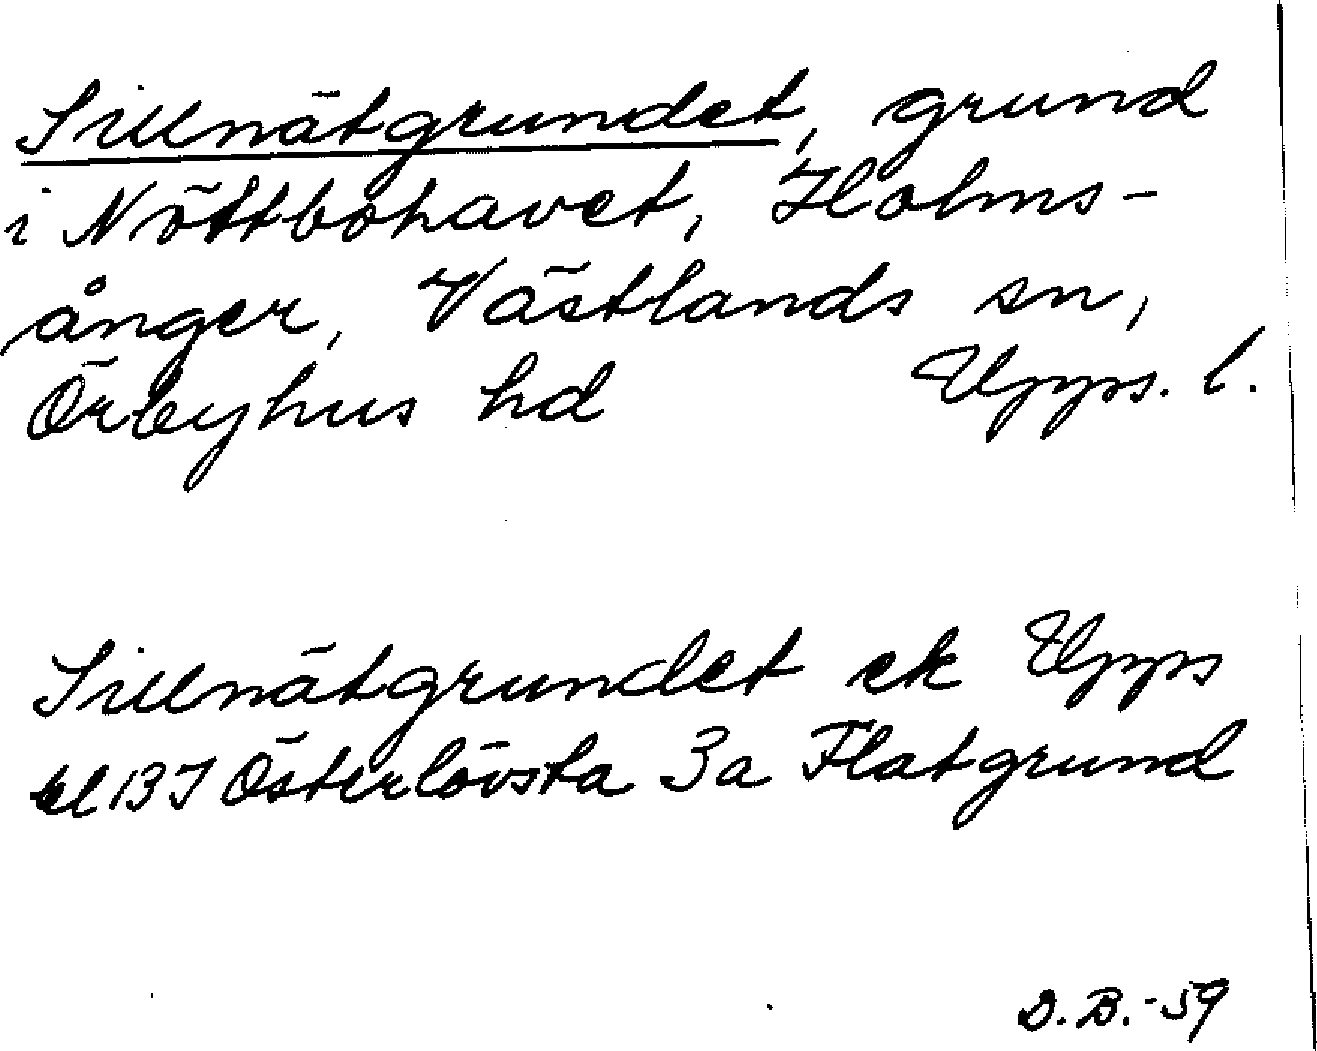 Sillnätgrundet, grund
i Nöttbohavet, Holms-
ånger, Västlands sn,
Örbyhus hd Upps. l.
Sillnätgrundet ek Upps
bl 13 I Österlövsta 3a Flatgrund
D.B.-59